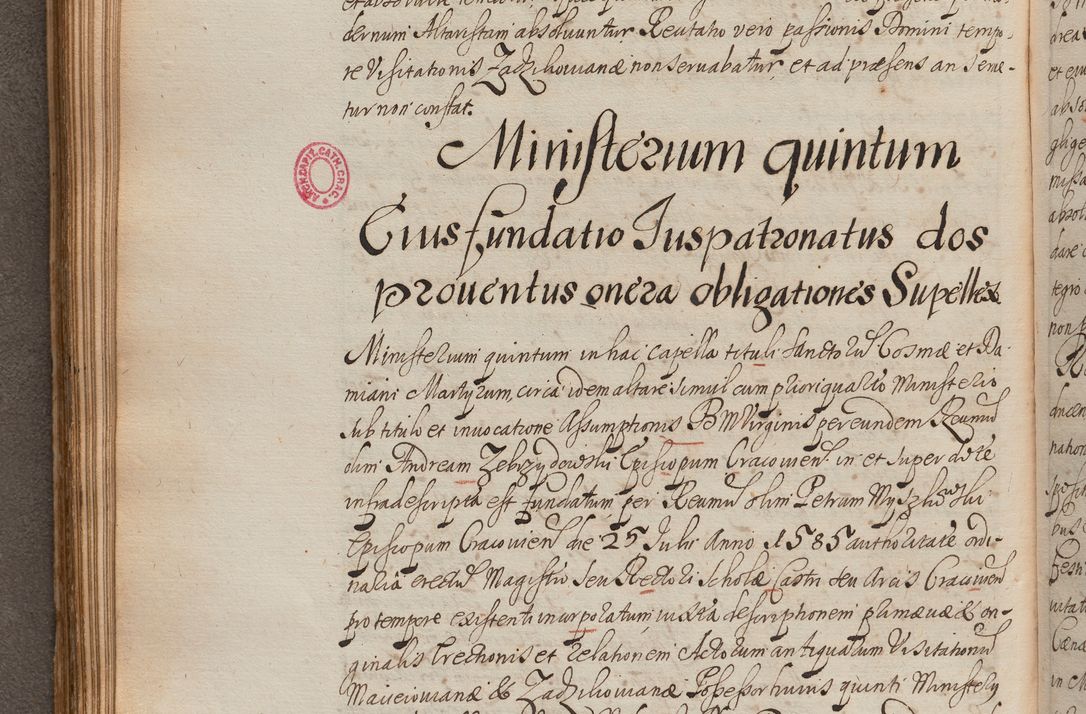 dernum Altaristam absoluuntur, Recitatio vero passionis Domini tempo-
re Visitationis Zadzikowianæ non seruabatur, et ad præsens an serue-
tur non constat.
Ministerium quintum
Eius fundatio Iuspatronatus dos
prouentus onera obligationes Supellex
ARCH. CAPIT. CATH. CRAC.
Ministerium quintum in hac capella tituli Sanctorū Cosmæ et Da-
miani Martyrum, circa idem altare simul cum priori quarto Ministerio
sub titulo et inuocatione Assumptionis B M Virginis per eundem Reumū
olim Andream Zebrzydowski Episcopum Cracouien. in et super dote
infradescripta est fundatum per Reumū olim Petrum Myszkowski
Episcopum Cracouien die 25 Julii Anno 1585 authoritate ordi-
naria erectū Magistro seu Rectori Scholæ Castri seu Arcis Cracouien
pro tempore existenti incorporatum, iuxta descriptionem primæuæ & ori-
ginalis Erectionis et relationem Actorum antiquarum Visitationū
Macieiowianæ & Zadzikowianæ Possessor huius quinti Ministerij